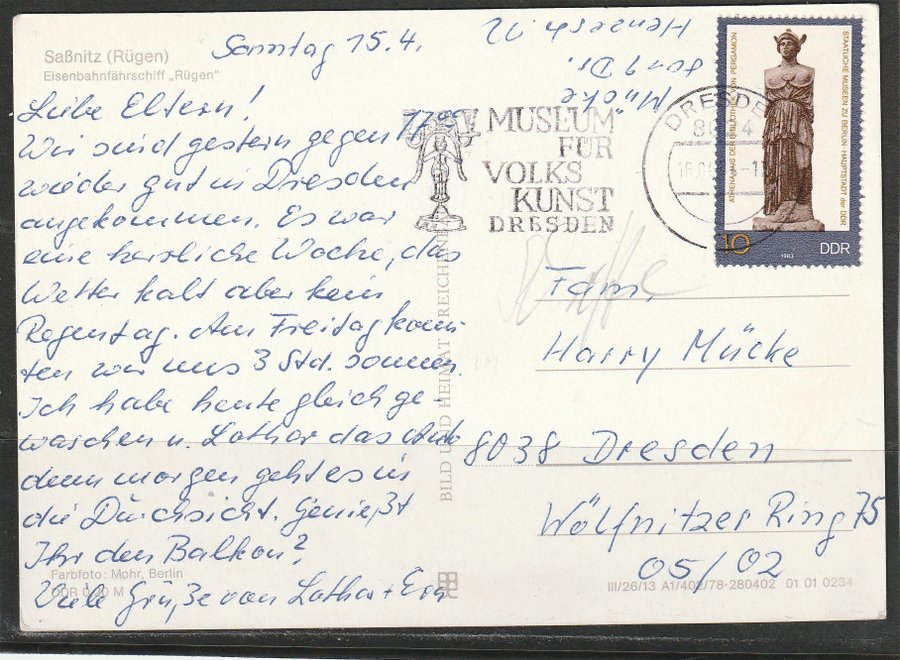 Saßnitz (Rügen)
Eisenbahnfährschiff „Rügen"
Sonntag 15.4.
Liebe Eltern!
Wir sind gestern gegen 17⁰⁰
wieder gut in Dresden
angekommen. Es war
eine herrliche Woche, das
Wetter kalt aber kein
Regentag. Am Freitag konn-
ten wir uns 3 Std. sonnen.
Ich habe heute gleich ge-
waschen u. Lothar das Auto
denn morgen geht es in
die Durchsicht. Genießt
Ihr den Balkon?
Viele Grüße von Lothar +
Farbfoto: Mohr, Berlin
DDR 0,20 M
BILD UND HEIMAT REICHENBACH
Mücke
Dr.
MUSEUM
FÜR
VOLKS
KUNST
DRESDEN
DRESDEN
ATHENA AUS DER BIBLIOTHEK VON PERGAMON
STAATLICHE MUSEEN ZU BERLIN · HAUPTSTADT der DDR
10
1983
DDR
Fam.
Harry Mücke
8038 Dresden
Wölfnitzer Ring 75
05/02
III/26/13 A1/402/78-280402 01 01 0234